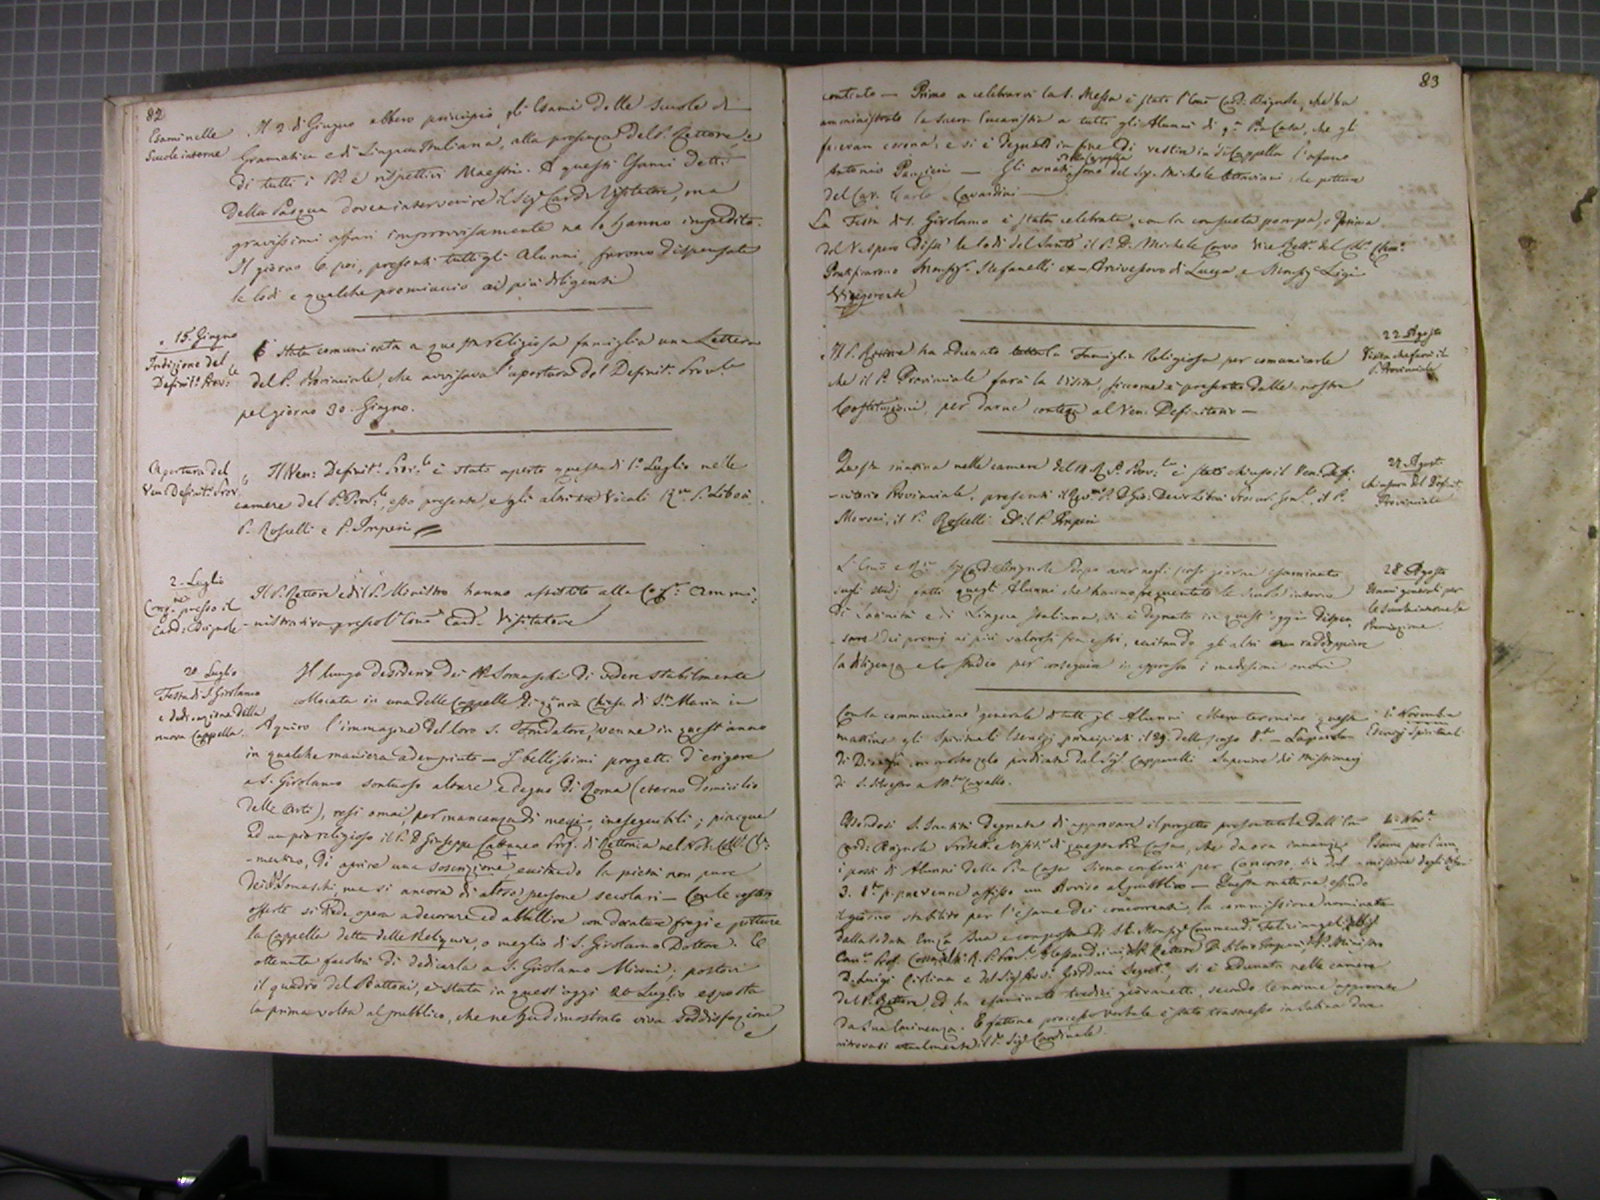 82
Esami nelle
Scuole interne
Il 2 di Giugno ebbero principio gli Esami delle Scuole di
Gramatica e di Lingua Italiana, alla presenza del P. Rettore, e
di tutti i PP. e rispettivi Maestri. A questi Esami detti
della Pasqua dovea intervenire il Sig. Card. Visitatore, ma
gravissimi affari improvvisamente ne lo hanno impedito.
Il giorno 6 poi, presenti tutti gli Alunni, furono dispensate
le lodi e qualche premiuccio ai più diligenti
15. Giugno
Indizione del
Definit. Prov.le
È stata comunicata a questa religiosa famiglia una Lettera
del P. Provinciale, che avvisava l'apertura del Definit. Prov.le
pel giorno 30. Giugno.
Apertura del
Ven. Definit. Prov.le
Il Ven: Definit.o Prov.le è stato aperto questo dì 1.o Luglio nelle
camere del P. Prov.le, esso presente, e gli altri tre Vocali R.mo P. Libois
P. Rosselli e P. Imperi
2. Luglio
Cong.ne presso il
Card. Brignole
Il P. Rettore ed il P. Ministro hanno assistito alla Cog.e Ammi-
nistrativa presso l'Emo Card. Visitatore
20 Luglio
Festa di S. Girolamo
e dedicazione della
nuova Cappella.
Il lungo desiderio dei PP. Somaschi di vedere stabilmente
collocata in una delle Cappelle di q.a n.ra Chiesa di S.ta Maria in
Aquiro l'immagine del loro S. Fondatore, venne in quest'anno
in qualche maniera adempiuto — I bellissimi progetti d'erigere
a S. Girolamo sontuoso altare e degno di Roma (eterno domicilio
delle Arti), resi omai, per mancanza di mezzi, ineseguibili; piacque
ad un pio religioso il P. D. Giuseppe Cattaneo Prof. di Rettorica nel Nob. Coll. Cle-
mentino, di aprire una soscrizione, eccitando la pietà non pure
dei PP. Somaschi, ma sì ancora di altre persone secolari — Con le
offerte si diede opera a decorare ed abbellire con dorature fregi e pitture
la Cappella detta delle Reliquie, o meglio di S. Girolamo Dottore. E
ottenuta facoltà di dedicarla a S. Girolamo Miani, postovi
il quadro del Battoni, è stata in quest'oggi 20 Luglio esposta
la prima volta al pubblico, che ne ha dimostrato viva soddisfazione
e
83
contento — Primo a celebrarvi la S. Messa è stato l'Emo Card. Brignole, che ha
amministrato la Sacra Eucaristia a tutti gli Alunni di q.a Pia Casa, che gli
facevan corona, e si è degnato in fine di vestire in d.a Cappella l'orfano
Antonio — Gli ornati della Cappella sono del Sig. Michele Ottaviani, le pitture
del Cav. Carlo Gavardini —
La Festa di S. Girolamo è stata celebrata con la consueta pompa, e prima
del Vespero disse le lodi del Santo il P. D. Michele Cavo Vice Rett. del Coll. Clem.o
Pontificarono Monsig.r Stefanelli ex-Arcivescovo di Lucca e Monsig. Ligi
Vicegerente
22 Agosto
Visita che farà il
P. Provinciale
Il P. Rettore ha adunato la Famiglia Religiosa per comunicarle
che il P. Provinciale farà la visita, siccome è prescritto dalle nostre
Costituzioni, per darne contezza al Ven: Definitorio —
24 Agosto
Chiusura del Definit.
Provinciale
Questa mattina nelle camere del M. R. P. Prov.le è stato chiuso il Ven. Defi-
nitorio Provinciale, presenti il R.mo P. D. Gio: Decio Libois Procur. Gen.le, il P.
Moroni, il P. Rosselli ed il P. Imperi
28 Agosto
Esami generali per
le Scuole interne e
Premiazione.
L'Emo e R.mo Sig. Card. Brignole dopo aver negli scorsi giorni esaminato
sugli studj fatti quegli Alunni che hanno frequentato le Scuole interne
di Latinità e di Lingua Italiana, si è degnato in quest'oggi dispen-
sare dei premj ai più valorosi fra essi, eccitando gli altri a raddoppiare
la diligenza e lo studio per conseguire in appresso i medesimi onori
1.o Novembre
Esercizj Spirituali
Con la communione generale di tutti gli Alunni ebbero termine questa
mattina gli Spirituali Esercizj principiati il 29. dello scorso 8.bre — La parola
di Dio con molto zelo predicata dal Sig. Cappanelli Superiore dei Missionarj
di S. Silvestro a M.te Cavallo.
4. Nov.e
Esame per l'am-
missione degli Orfani
Essendosi S. Santità degnata di approvare il progetto presentatole dall'Emo
Card. Brignole e Visit.e di questa Pia Casa, che da ora innanzi
i posti di Alunni della Pia Casa siano conferiti per Concorso, sin dal
3. 8.bre p.p. ne venne affisso un Avviso al pubblico — Questa mattina, essendo
il giorno stabilito per l'esame dei concorrenti, la commissione nominata
dalla lodata Em.za Sua e composta di S. E. Monsig.r Commend.e Feliciangeli, del Sig.
Can.o Prof. del M. R. P. Prov.le Alessandrini, del P. Rettore D. Silvio Imperi, del P. Ministro
D. Luigi Cortina e del Sig. Avv. Giordani Segret.o, si è adunata nelle camere
del P. Rettore, ed ha esaminato tredici giovanetti, secondo le norme approvate
da Sua Eminenza. E fattone processo verbale è stato trasmesso in Sabina dove
ritrovasi attualmente il d.o Sig. Cardinale